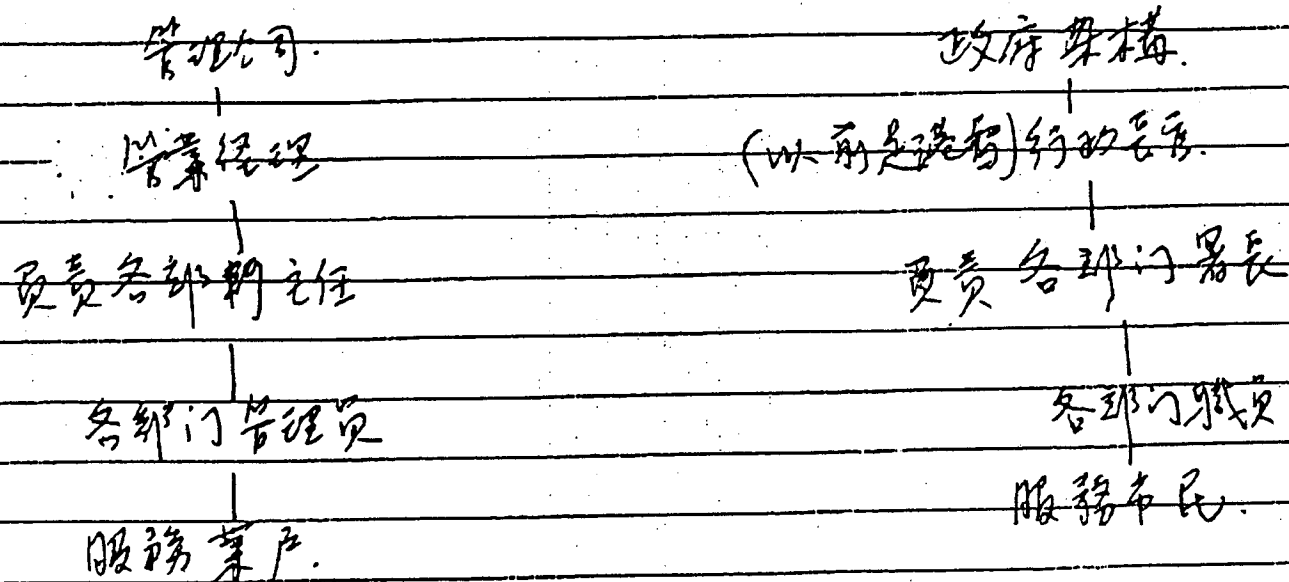 管理公司.
营業经理
負责各部門主任
各部门管理员
服務業户.
政府架構.
(以前是港督)行政長官.
負责各部门署長
各部门職员
服務市民.